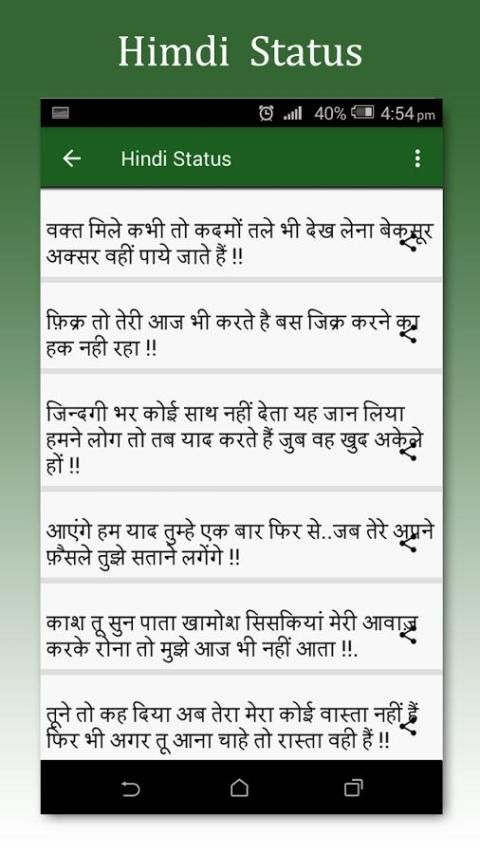 Himdi Status
40% 4:54 pm
Hindi Status
वक्त मिले कभी तो कदमों तले भी देख लेना बेकसूर
अक्सर वहीं पाये जाते हैं !!
फ़िक्र तो तेरी आज भी करते है बस जिक्र करने का
हक नही रहा !!
जिन्दगी भर कोई साथ नहीं देता यह जान लिया
हमने लोग तो तब याद करते हैं जुब वह खुद अकेले
हों !!
आएंगे हम याद तुम्हे एक बार फिर से..जब तेरे अपने
फ़ैसले तुझे सताने लगेंगे !!
काश तू सुन पाता खामोश सिसकियां मेरी आवाज़
करके रोना तो मुझे आज भी नहीं आता !!.
तूने तो कह दिया अब तेरा मेरा कोई वास्ता नहीं हैं
फिर भी अगर तू आना चाहे तो रास्ता वही हैं !!